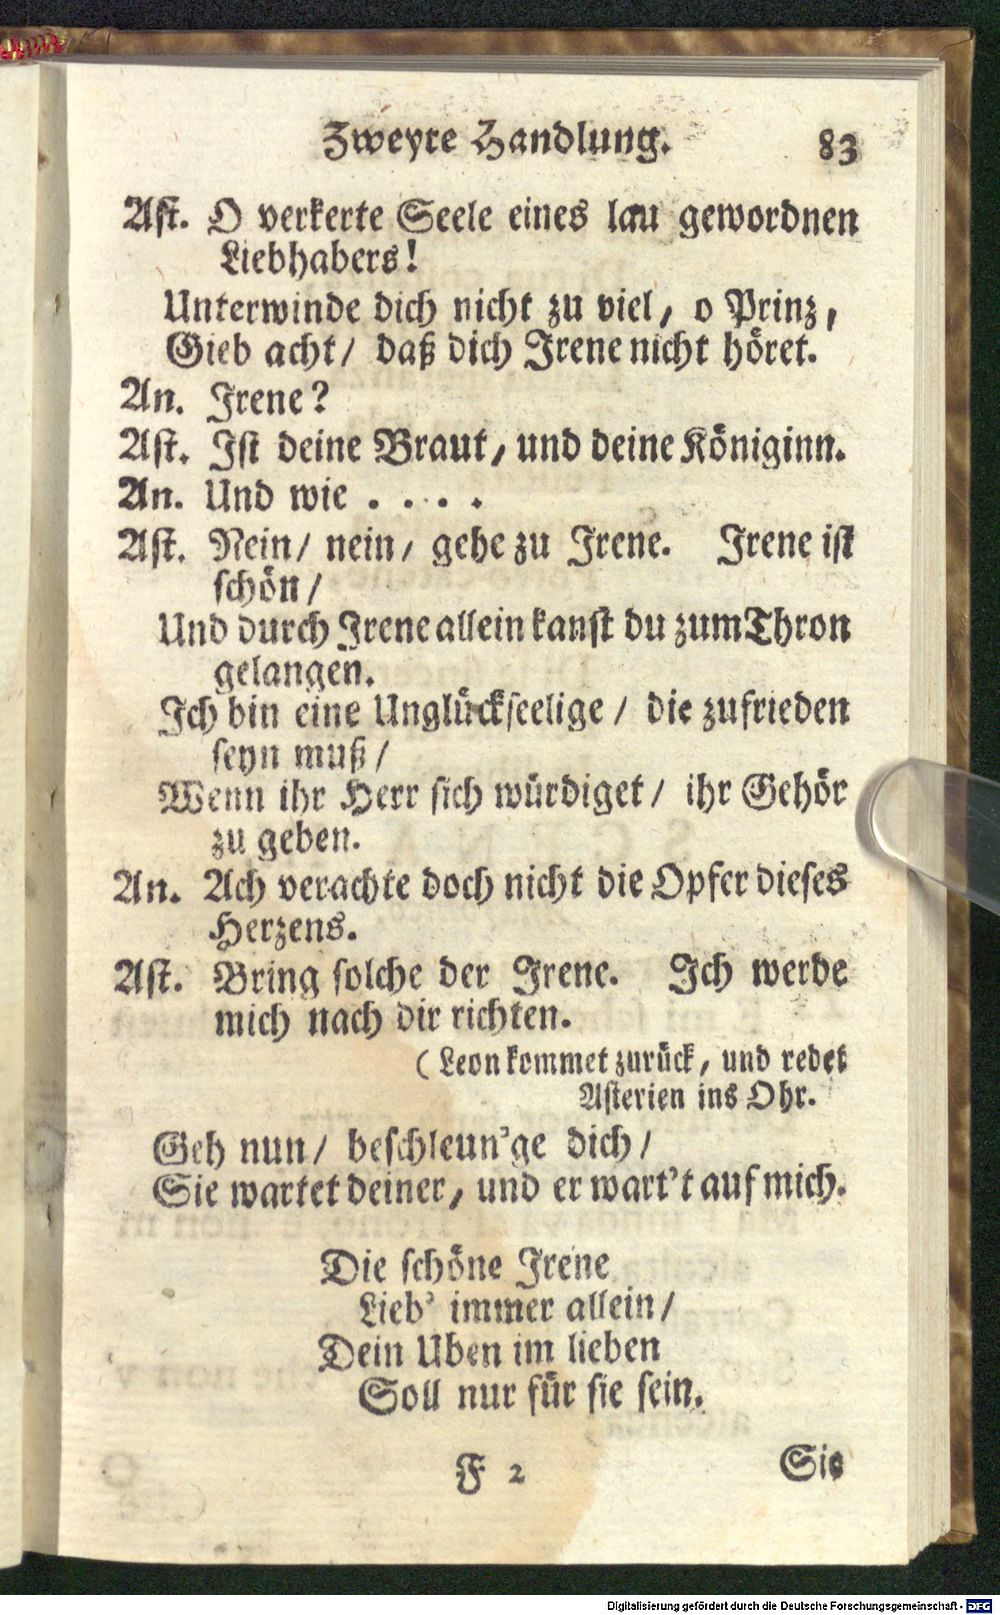 Zweyte Handlung. 83
Ast. O verkerte Seele eines lau gewordnen
Liebhabers!
Unterwinde dich nicht zu viel, o Prinz,
Gieb acht/ daß dich Irene nicht höret.
An. Irene?
Ast. Ist deine Braut, und deine Königinn.
An. Und wie . . . .
Ast. Nein/ nein/ gehe zu Irene. Irene ist
schön/
Und durch Irene allein kanst du zum Thron
gelangen.
Ich bin eine Unglückseelige/ die zufrieden
seyn muß/
Wenn ihr Herr sich würdiget/ ihr Gehör
zu geben.
An. Ach verachte doch nicht die Opfer dieses
Herzens.
Ast. Bring solche der Irene. Ich werde
mich nach dir richten.
(Leon kommet zurück, und redet
Asterien ins Ohr.
Geh nun/ beschleun'ge dich/
Sie wartet deiner, und er wart't auf mich.
Die schöne Irene
Lieb' immer allein/
Dein Uben im lieben
Soll nur für sie sein.
F 2 Sie
Digitalisierung gefördert durch die Deutsche Forschungsgemeinschaft - DFG